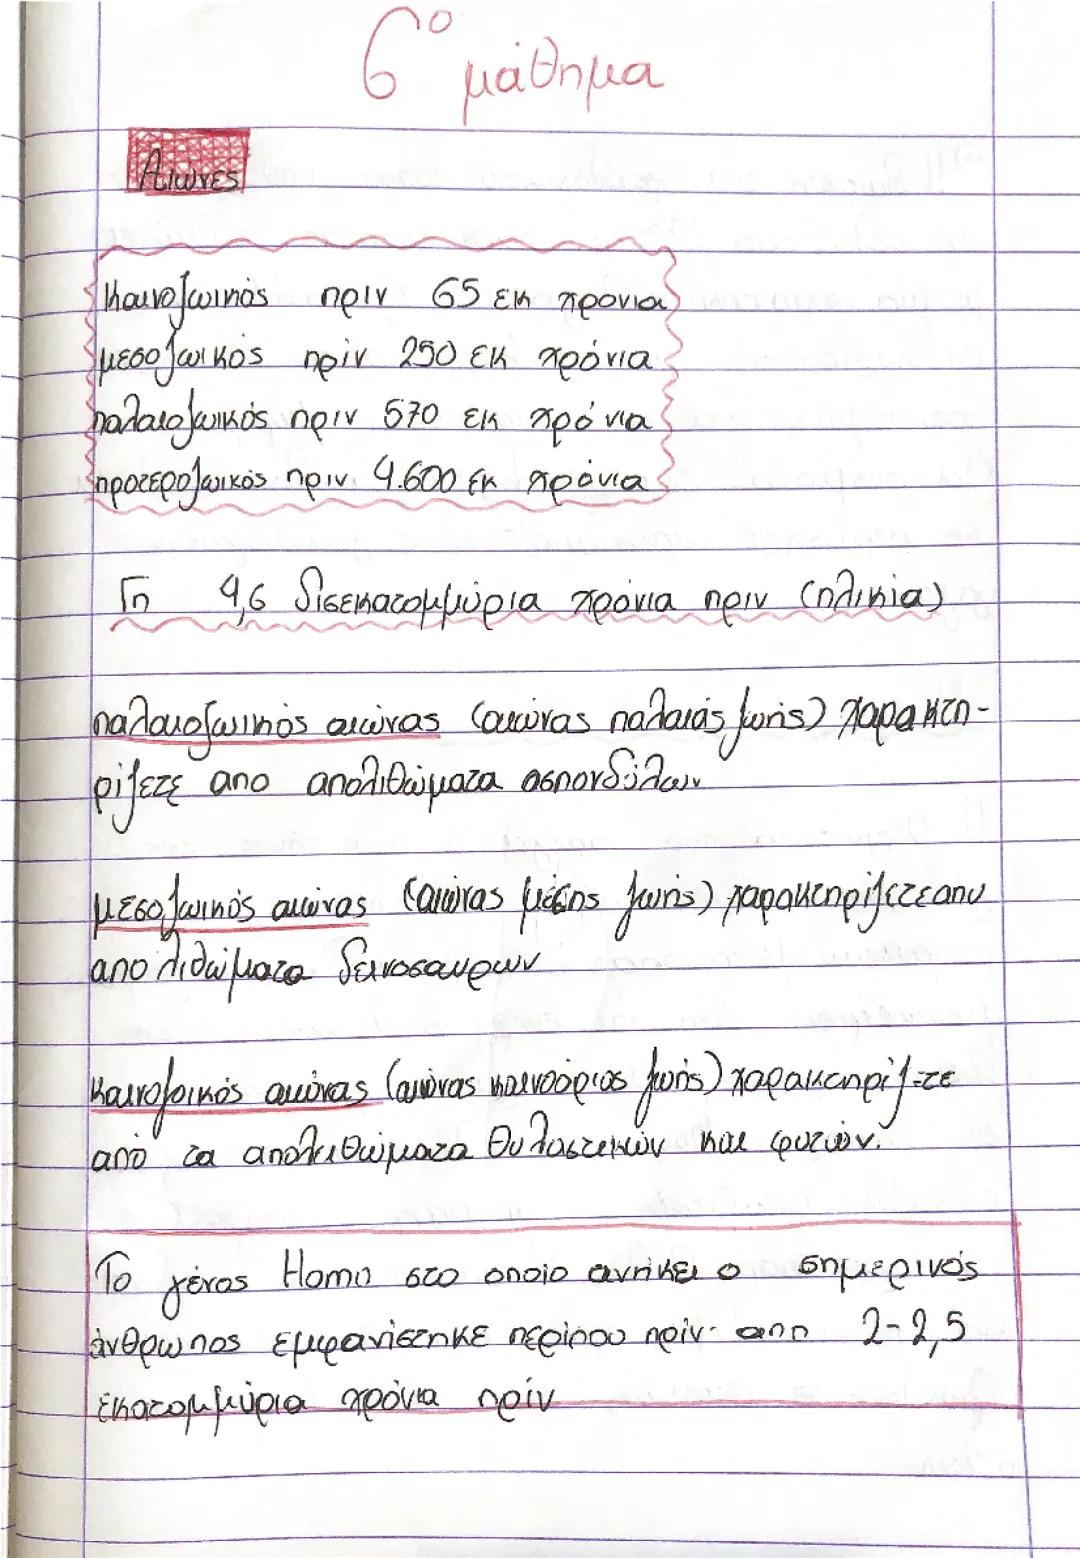 6° μάθημα
Αιώνες
Καινοζωικός πριν 65 εκ χρονια
μεσοζωικός πρίν 250 εκ χρόνια
παλαιοζωικός πριν 570 εκ χρόνια
προτεροζωικός πριν 4.600 εκ χρόνια
Γη 4,6 δισεκατομμύρια χρόνια πριν (ηλικία)
παλαιοζωικός αιώνας (αιώνας παλαιάς ζωής) χαρακτη-
ρίζετε απο απολιθώματα ασπονδύλων
μεσοζωικός αιώνας (αιώνας μέσης ζωής) χαρακτηρίζετε απο
απολιθώματα δεινοσαυρων
Καινοζοικός αιώνας (αιώνας καινούριος ζωής) χαρακτηρίζετε
από τα απολιθώματα θυλαστικών και φυτών.
Το γένος Homo στο οποίο ανηκει ο σημερινός
άνθρωπος εμφανίστηκε περίπου πρίν απο 2-2,5
εκατομμύρια χρόνια πρίν